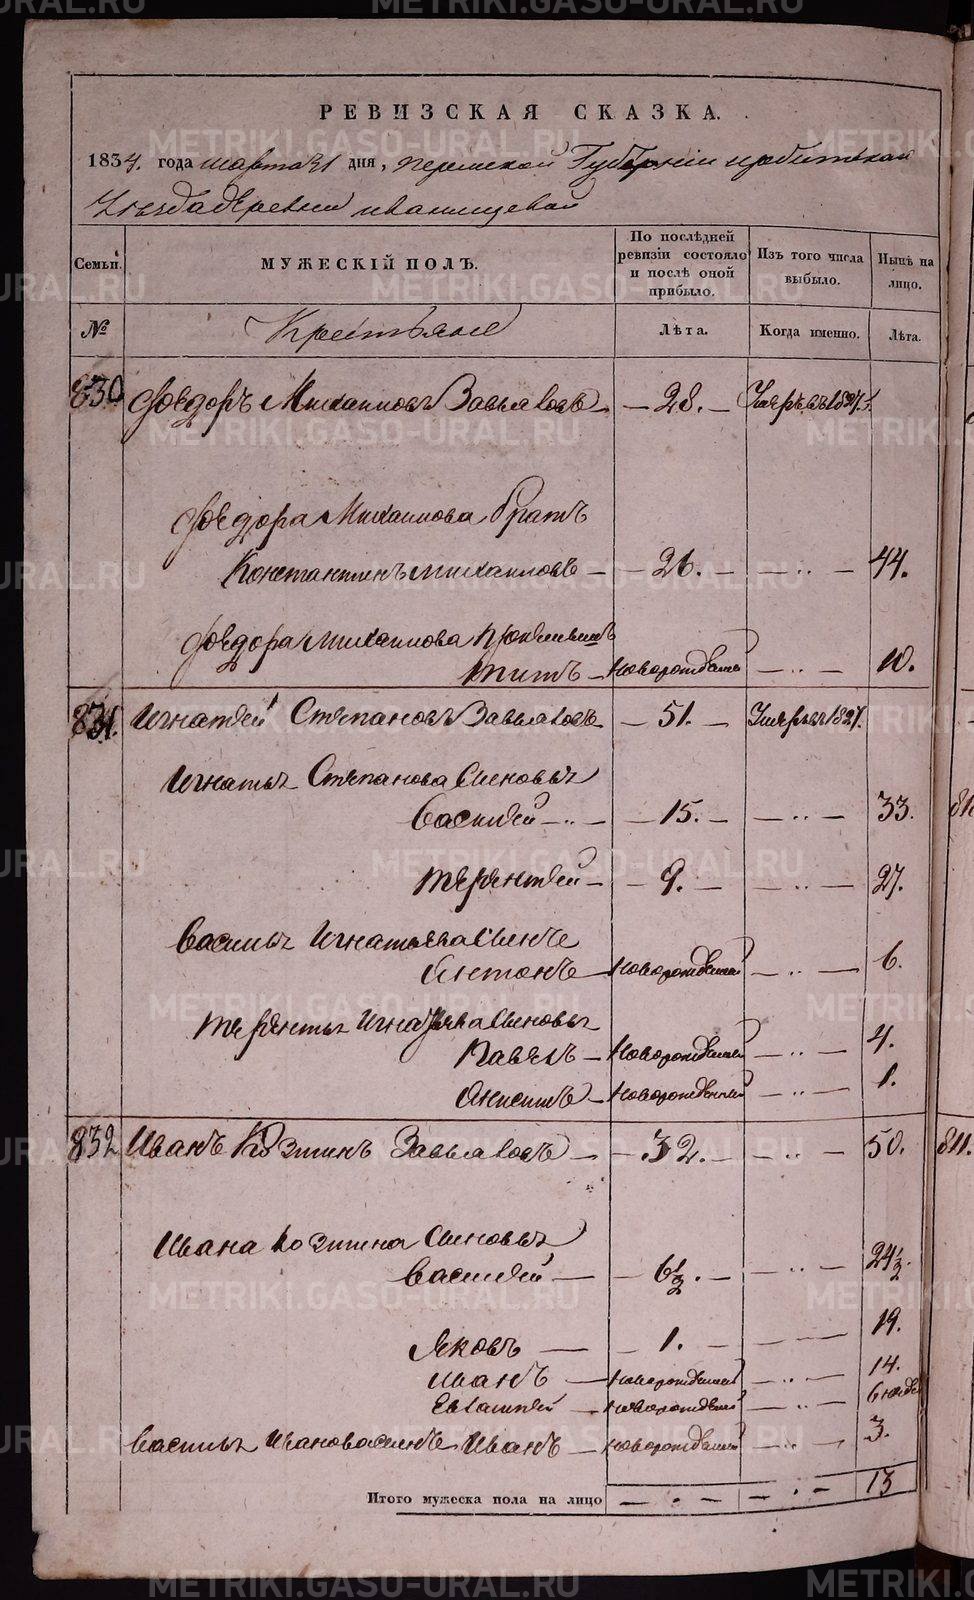 METRIKI.GASO-URAL.RU
РЕВИЗСКАЯ СКАЗКА.
1834. года марта 31 дня, Пермской Губернии Ирбитскаи
Уезда деревни иванищевой
Семьи.
МУЖЕСКІЙ ПОЛЪ.
По послѣдней ревизіи состояло и послѣ оной прибыло.
Изъ того числа выбыло.
Нынѣ на лицо.
№
Крестьяне
Лѣта.
Когда именно.
Лѣта.
830 Фѣдоръ Михаиловъ Завьяловъ — 28. — Умеръ въ 1827.
Фѣдора Михаилова братъ
Константинъ михаиловъ — 26. — 44.
Фѣдора михаилова
титъ — новорожденый — 10.
831. Игнатѣй Степановъ Завьяловъ — 51. — Умеръ въ 1827.
Игнатья Степанова Сыновья
Василѣй — 15. — 33.
терѣнтѣй — 9. — 27.
Василья Игнатьева Сынъ
Антонъ — новорожденый — 6.
терѣнтья Игнатьева Сыновья
Павелъ — новорожденый — 4.
Анисимъ — новорожденный — 1.
832 Иванъ Козминъ Завьяловъ — 32. — 50.
Ивана Козмина Сыновья
Василѣй — 6½. — 24½.
Яковъ — 1. — 19.
иванъ — новорожденый — 14.
Евлампѣй — новорожденый — 6 недѣ
Василья Иванова сынъ Иванъ — новорожденый — 3.
Итого мужеска пола на лицо — 13
811.